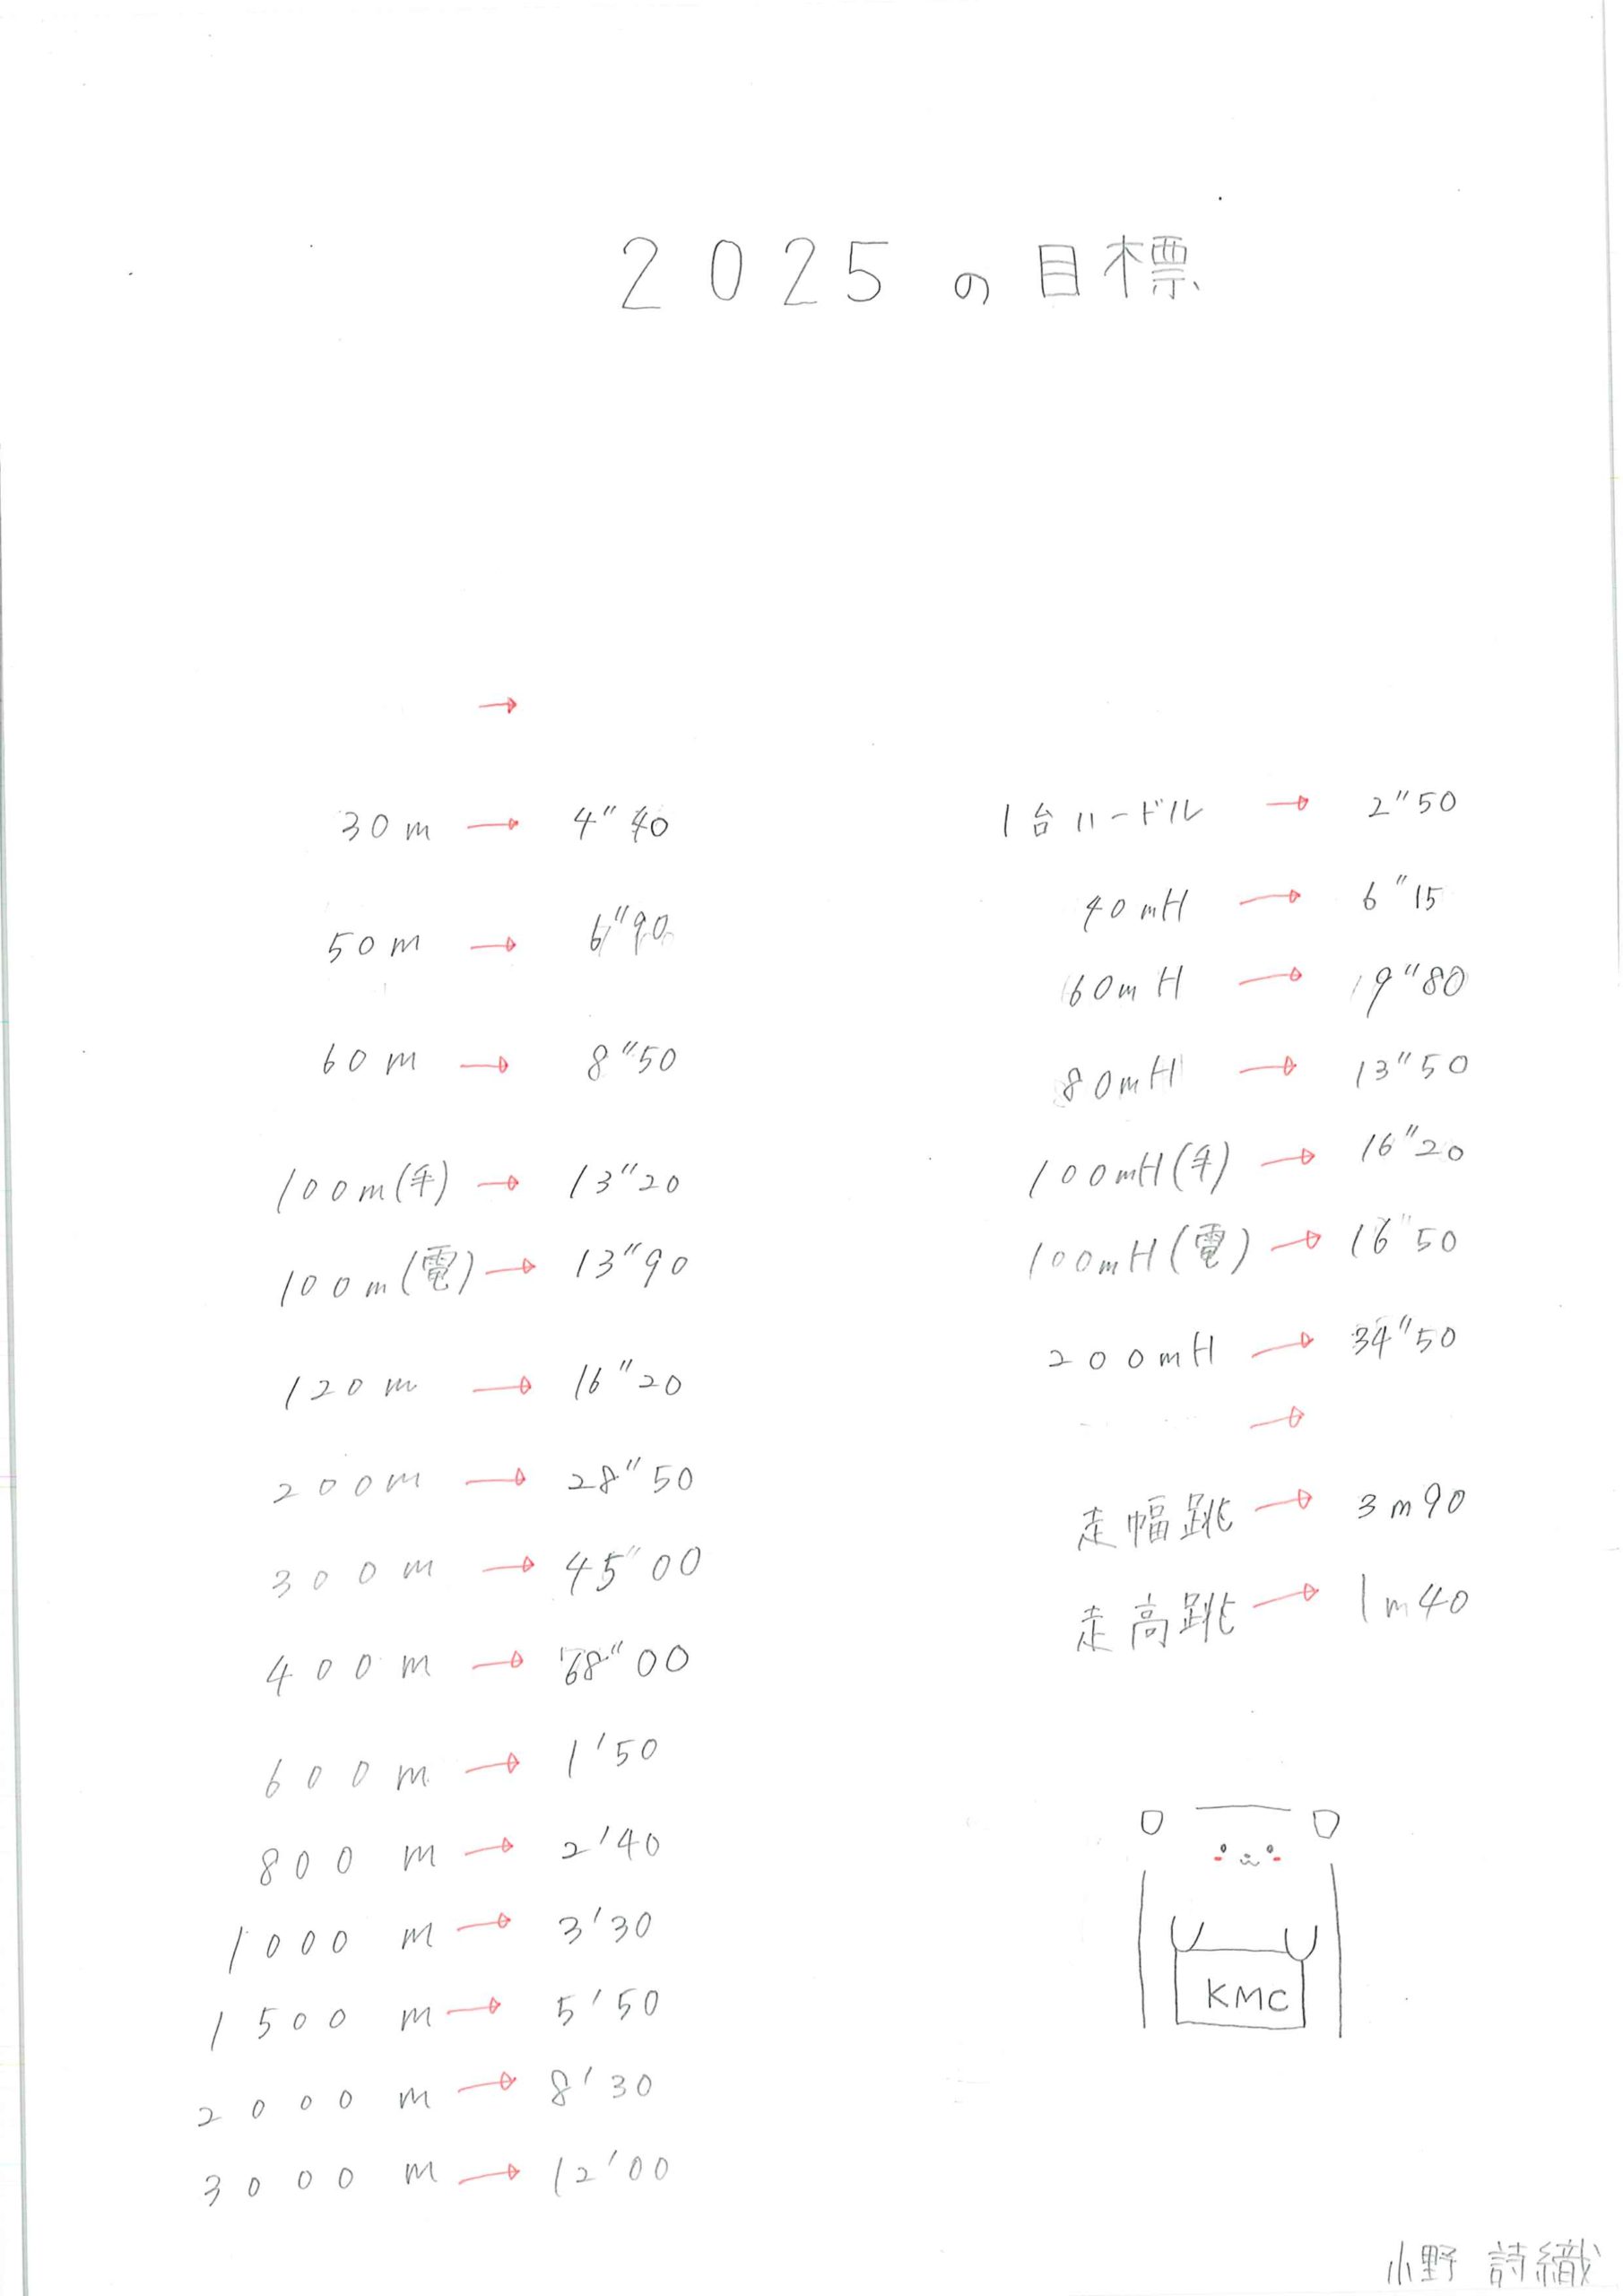 2025の目標
→
30m → 4"40
50m → 6"90
60m → 8"50
100m(手) → 13"20
100m(電) → 13"90
120m → 16"20
200m → 28"50
300m → 45"00
400m → 68"00
600m → 1'50
800m → 2'40
1000m → 3'30
1500m → 5'50
2000m → 8'30
3000m → 12'00
1台ハードル → 2"50
40mH → 6"15
60mH → 9"80
80mH → 13"50
100mH(手) → 16"20
100mH(電) → 16"50
200mH → 34"50
→
走幅跳 → 3m90
走高跳 → 1m40
KMC
小野 詩織